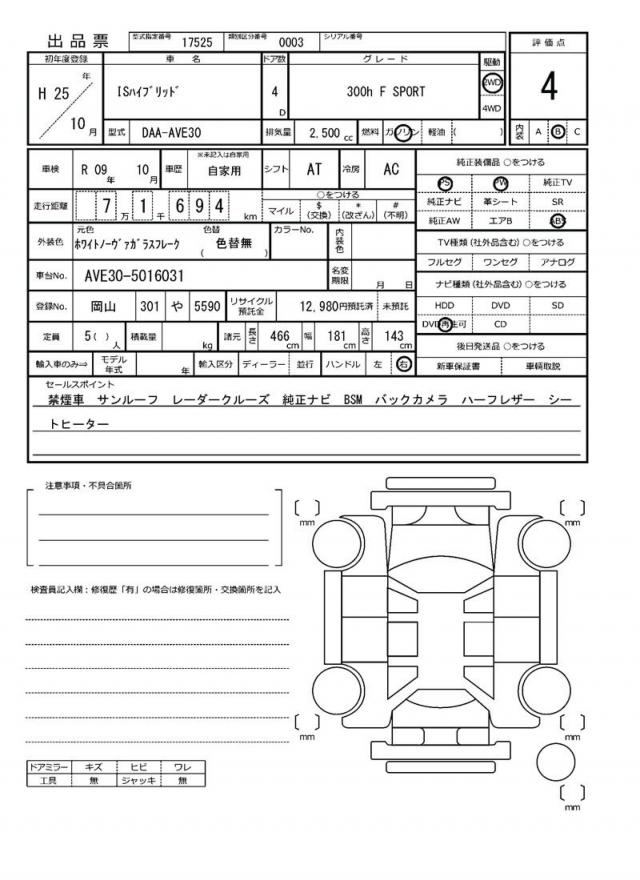 出品票 型式指定番号 17525 類別区分番号 0003 シリアル番号
評価点
4
初年度登録 車名 ドア数 グレード 駆動
H 25 年 10 月 ISハイブリッド 4 D 300h F SPORT 2WD 4WD
型式 DAA-AVE30 排気量 2,500 cc 燃料 ガソリン 軽油 ( )
内装 A B C
車検 R 09 年 10 月 車歴 ※未記入は自家用 自家用 シフト AT 冷房 AC
走行距離 7 万 1 千 6 9 4 km ○をつける
マイル $ (交換) * (改ざん) # (不明)
外装色 元色 ホワイトノーヴァガラスフレーク 色替 ( 色替無 ) カラーNo. 内装色
車台No. AVE30-5016031 名変期限 月 日
登録No. 岡山 301 や 5590 リサイクル預託金 12,980円預託済 未預託
定員 5( ) 人 積載量 kg 諸元 長さ 466 cm 幅 181 cm 高さ 143 cm
輸入車のみ⇒ モデル年式 年 輸入区分 ディーラー 並行 ハンドル 左 右
純正装備品 ○をつける
PS PW 純正TV
純正ナビ 革シート SR
純正AW エアB ABS
TV種類(社外品含む) ○をつける
フルセグ ワンセグ アナログ
ナビ種類(社外品含む) ○をつける
HDD DVD SD
DVD再生可 CD
後日発送品 ○をつける
新車保証書 車輌取説
セールスポイント
禁煙車 サンルーフ レーダークルーズ 純正ナビ BSM バックカメラ ハーフレザー シー
トヒーター
注意事項・不具合箇所
検査員記入欄：修復歴「有」の場合は修復箇所・交換箇所を記入
ドアミラー キズ ヒビ ワレ
工具 無 ジャッキ 無
[ ] mm
[ ] mm
[ ] mm
[ ] mm
[ ] mm